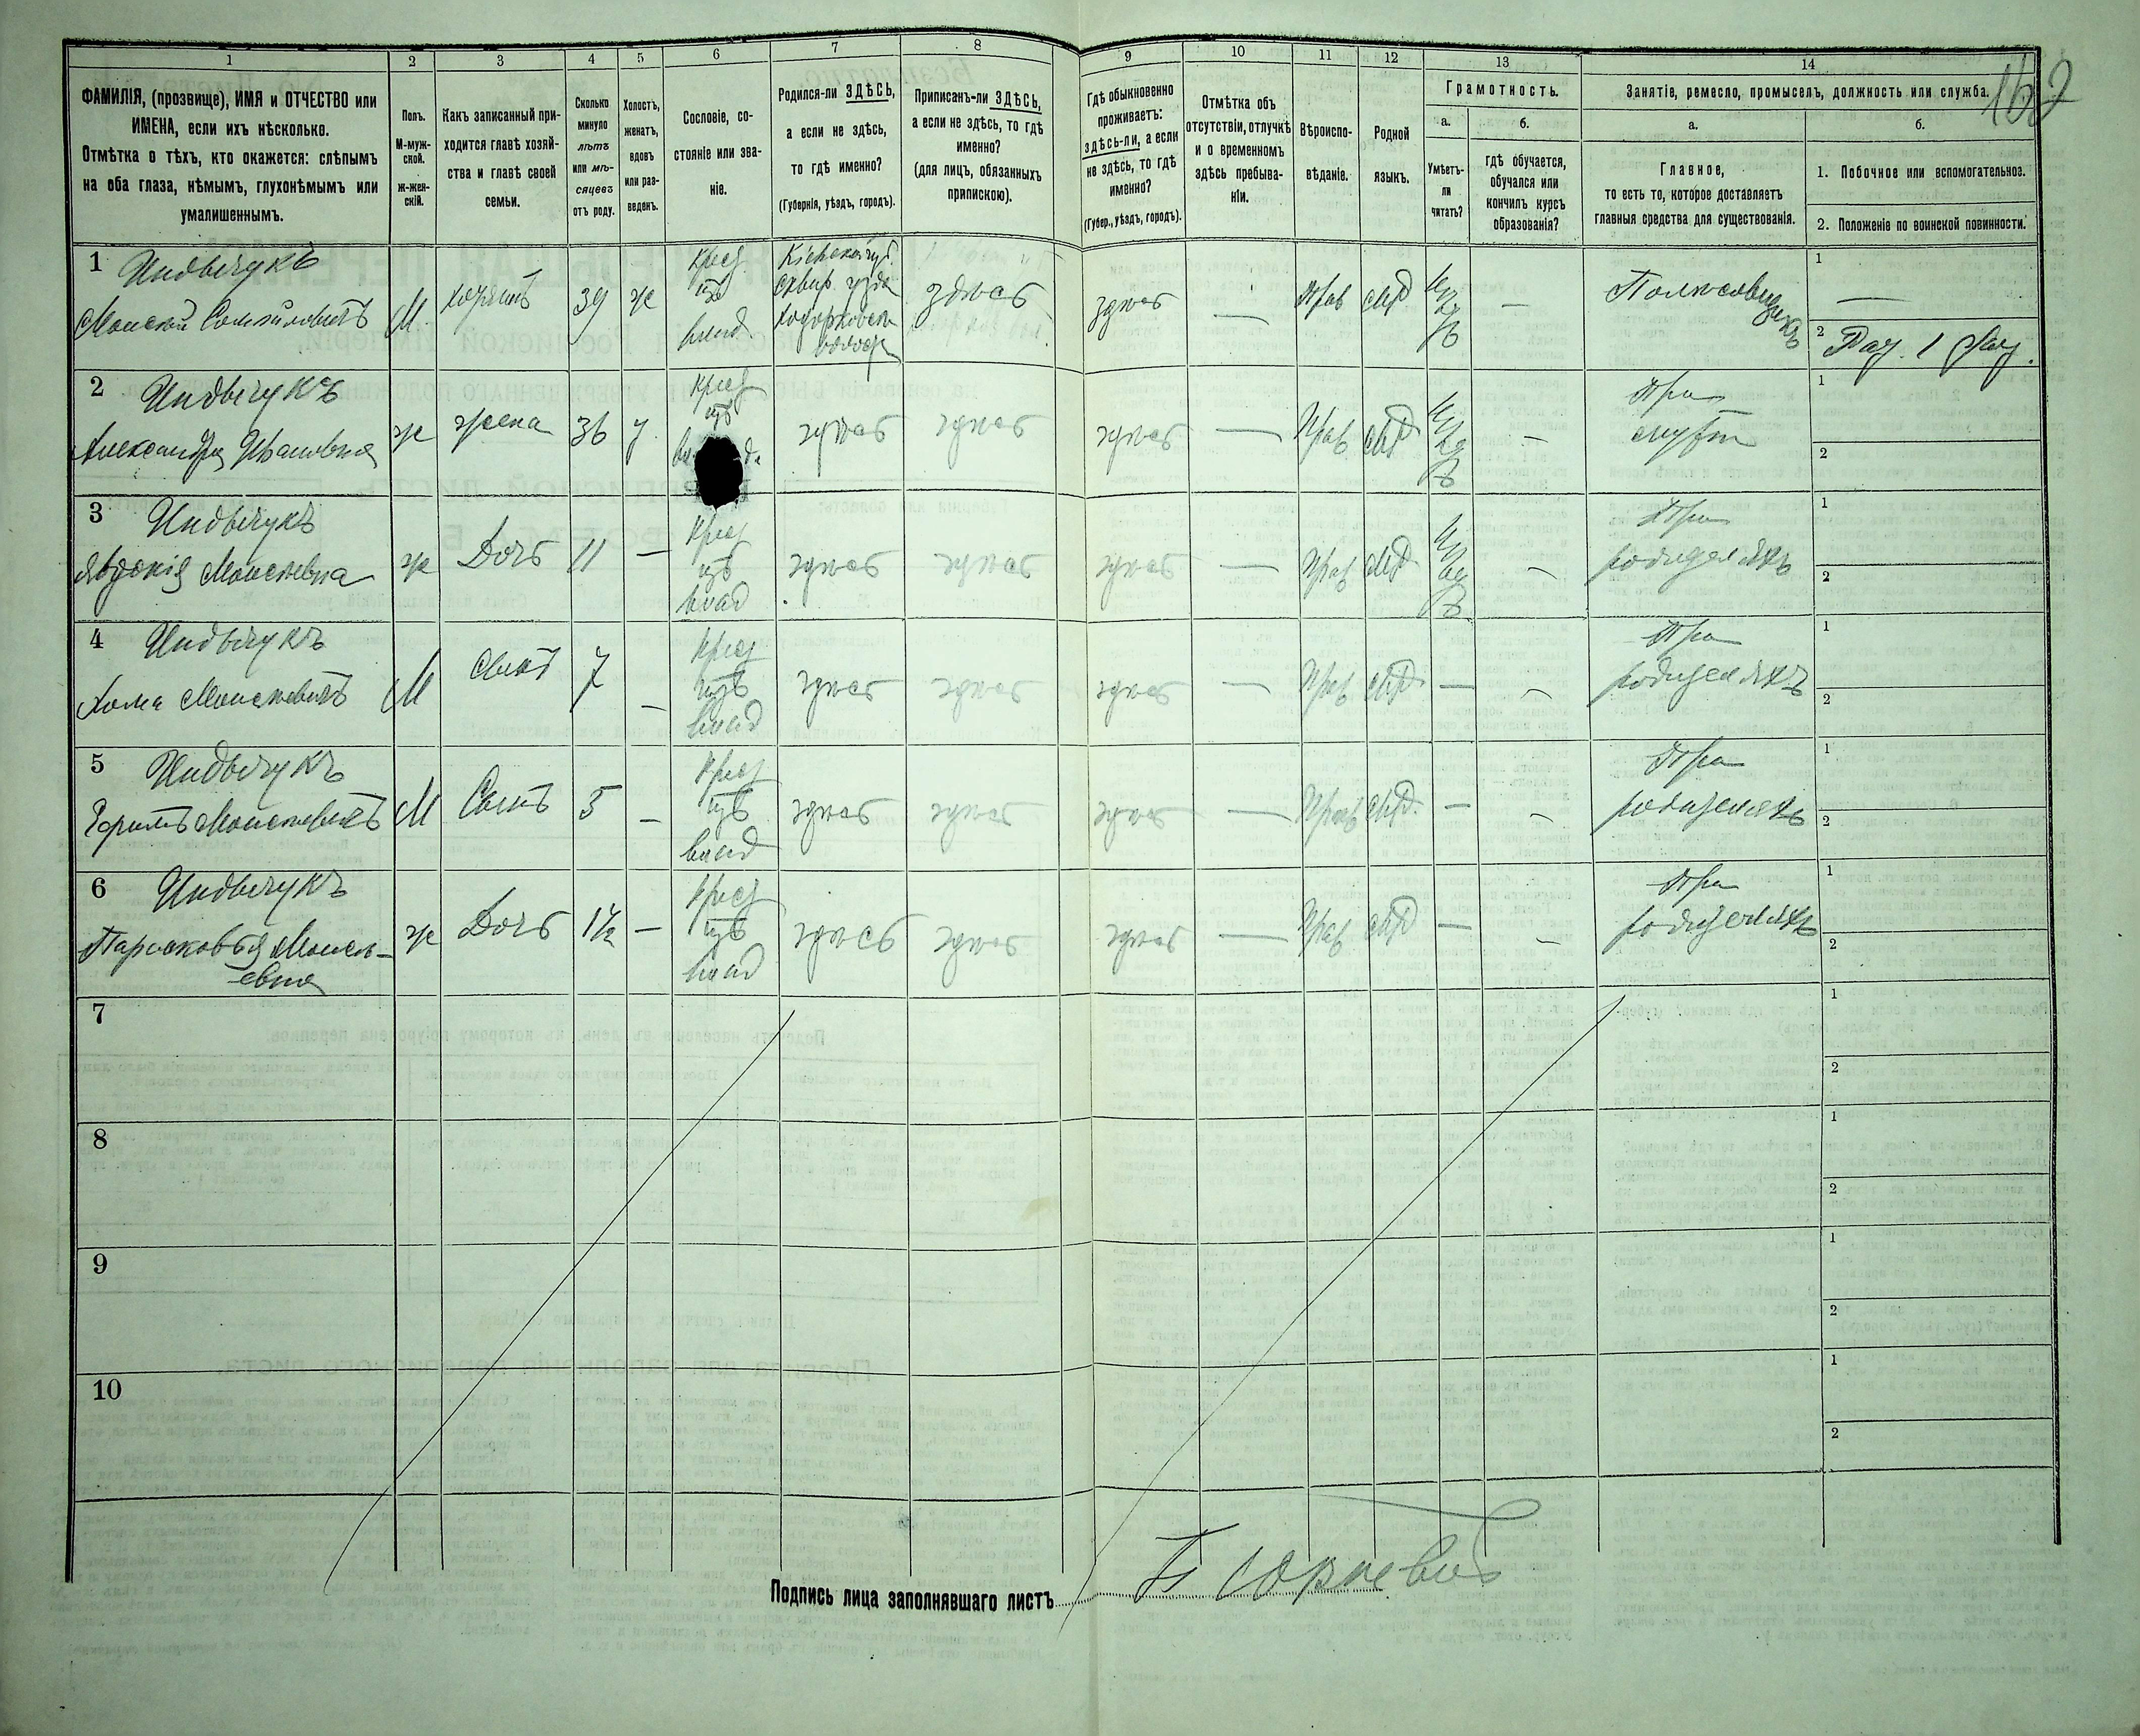 1
2
3
4
5
6
7
8
9
10
11
12
13
14
162
ФАМИЛІЯ, (прозвище), ИМЯ и ОТЧЕСТВО или
ИМЕНА, если ихъ нѣсколько.
Отмѣтка о тѣхъ, кто окажется: слѣпымъ
на оба глаза, нѣмымъ, глухонѣмымъ или
умалишеннымъ.
Полъ.
М-муж-
ской.
ж-жен-
скій.
Какъ записанный при-
ходится главѣ хозяй-
ства и главѣ своей
семьи.
Сколько
минуло
лѣтъ
или мѣ-
сяцевъ
отъ роду.
Холостъ,
женатъ,
вдовъ
или раз-
веденъ.
Сословіе, со-
стояніе или зва-
ніе.
Родился-ли ЗДѢСЬ,
а если не здѣсь,
то гдѣ именно?
(Губернія, уѣздъ, городъ).
Приписанъ-ли ЗДѢСЬ,
а если не здѣсь, то гдѣ
именно?
(для лицъ, обязанныхъ
припискою).
Гдѣ обыкновенно
проживаетъ:
здѣсь-ли, а если
не здѣсь, то гдѣ
именно?
(Губер., уѣздъ, городъ).
Отмѣтка объ
отсутствіи, отлучкѣ
и о временномъ
здѣсь пребыва-
ніи.
Вѣроиспо-
вѣданіе.
Родной
языкъ.
Грамотность.
а.
Умѣетъ-
ли
читать?
б.
гдѣ обучается,
обучался или
кончилъ курсъ
образованія?
Занятіе, ремесло, промыселъ, должность или служба.
а.
Главное,
то есть то, которое доставляетъ
главныя средства для существованія.
б.
1. Побочное или вспомогательное.
2. Положеніе по воинской повинности.
1
М
39
ж
Крест
изъ
влад.
здѣсь
здѣсь
—
Прав
—
1
—
2
2
Александра Ивановна
ж
жена
36
з
Крест
изъ
здѣсь
здѣсь
здѣсь
—
Прав
—
При
мужѣ
1
2
3
Моисѣевна
ж
Дочь
11
—
Крест
изъ
влад
здѣсь
здѣсь
здѣсь
—
Прав
—
При
родителяхъ
1
2
4
Хома Моисѣевичъ
М
сынъ
7
—
Крест
изъ
влад
здѣсь
здѣсь
здѣсь
—
Прав
—
—
При
родителяхъ
1
2
5
Моисѣевичъ
М
Сынъ
5
—
Крест
изъ
влад
здѣсь
здѣсь
здѣсь
—
Прав
—
—
При
родителяхъ
1
2
6
Парасковья Моисѣ-
евна
ж
Дочь
1½
—
Крест
изъ
влад
здѣсь
здѣсь
здѣсь
—
Прав
—
—
При
родителяхъ
1
2
7
1
2
8
1
2
9
1
2
10
1
2
Подпись лица заполнявшаго листъ